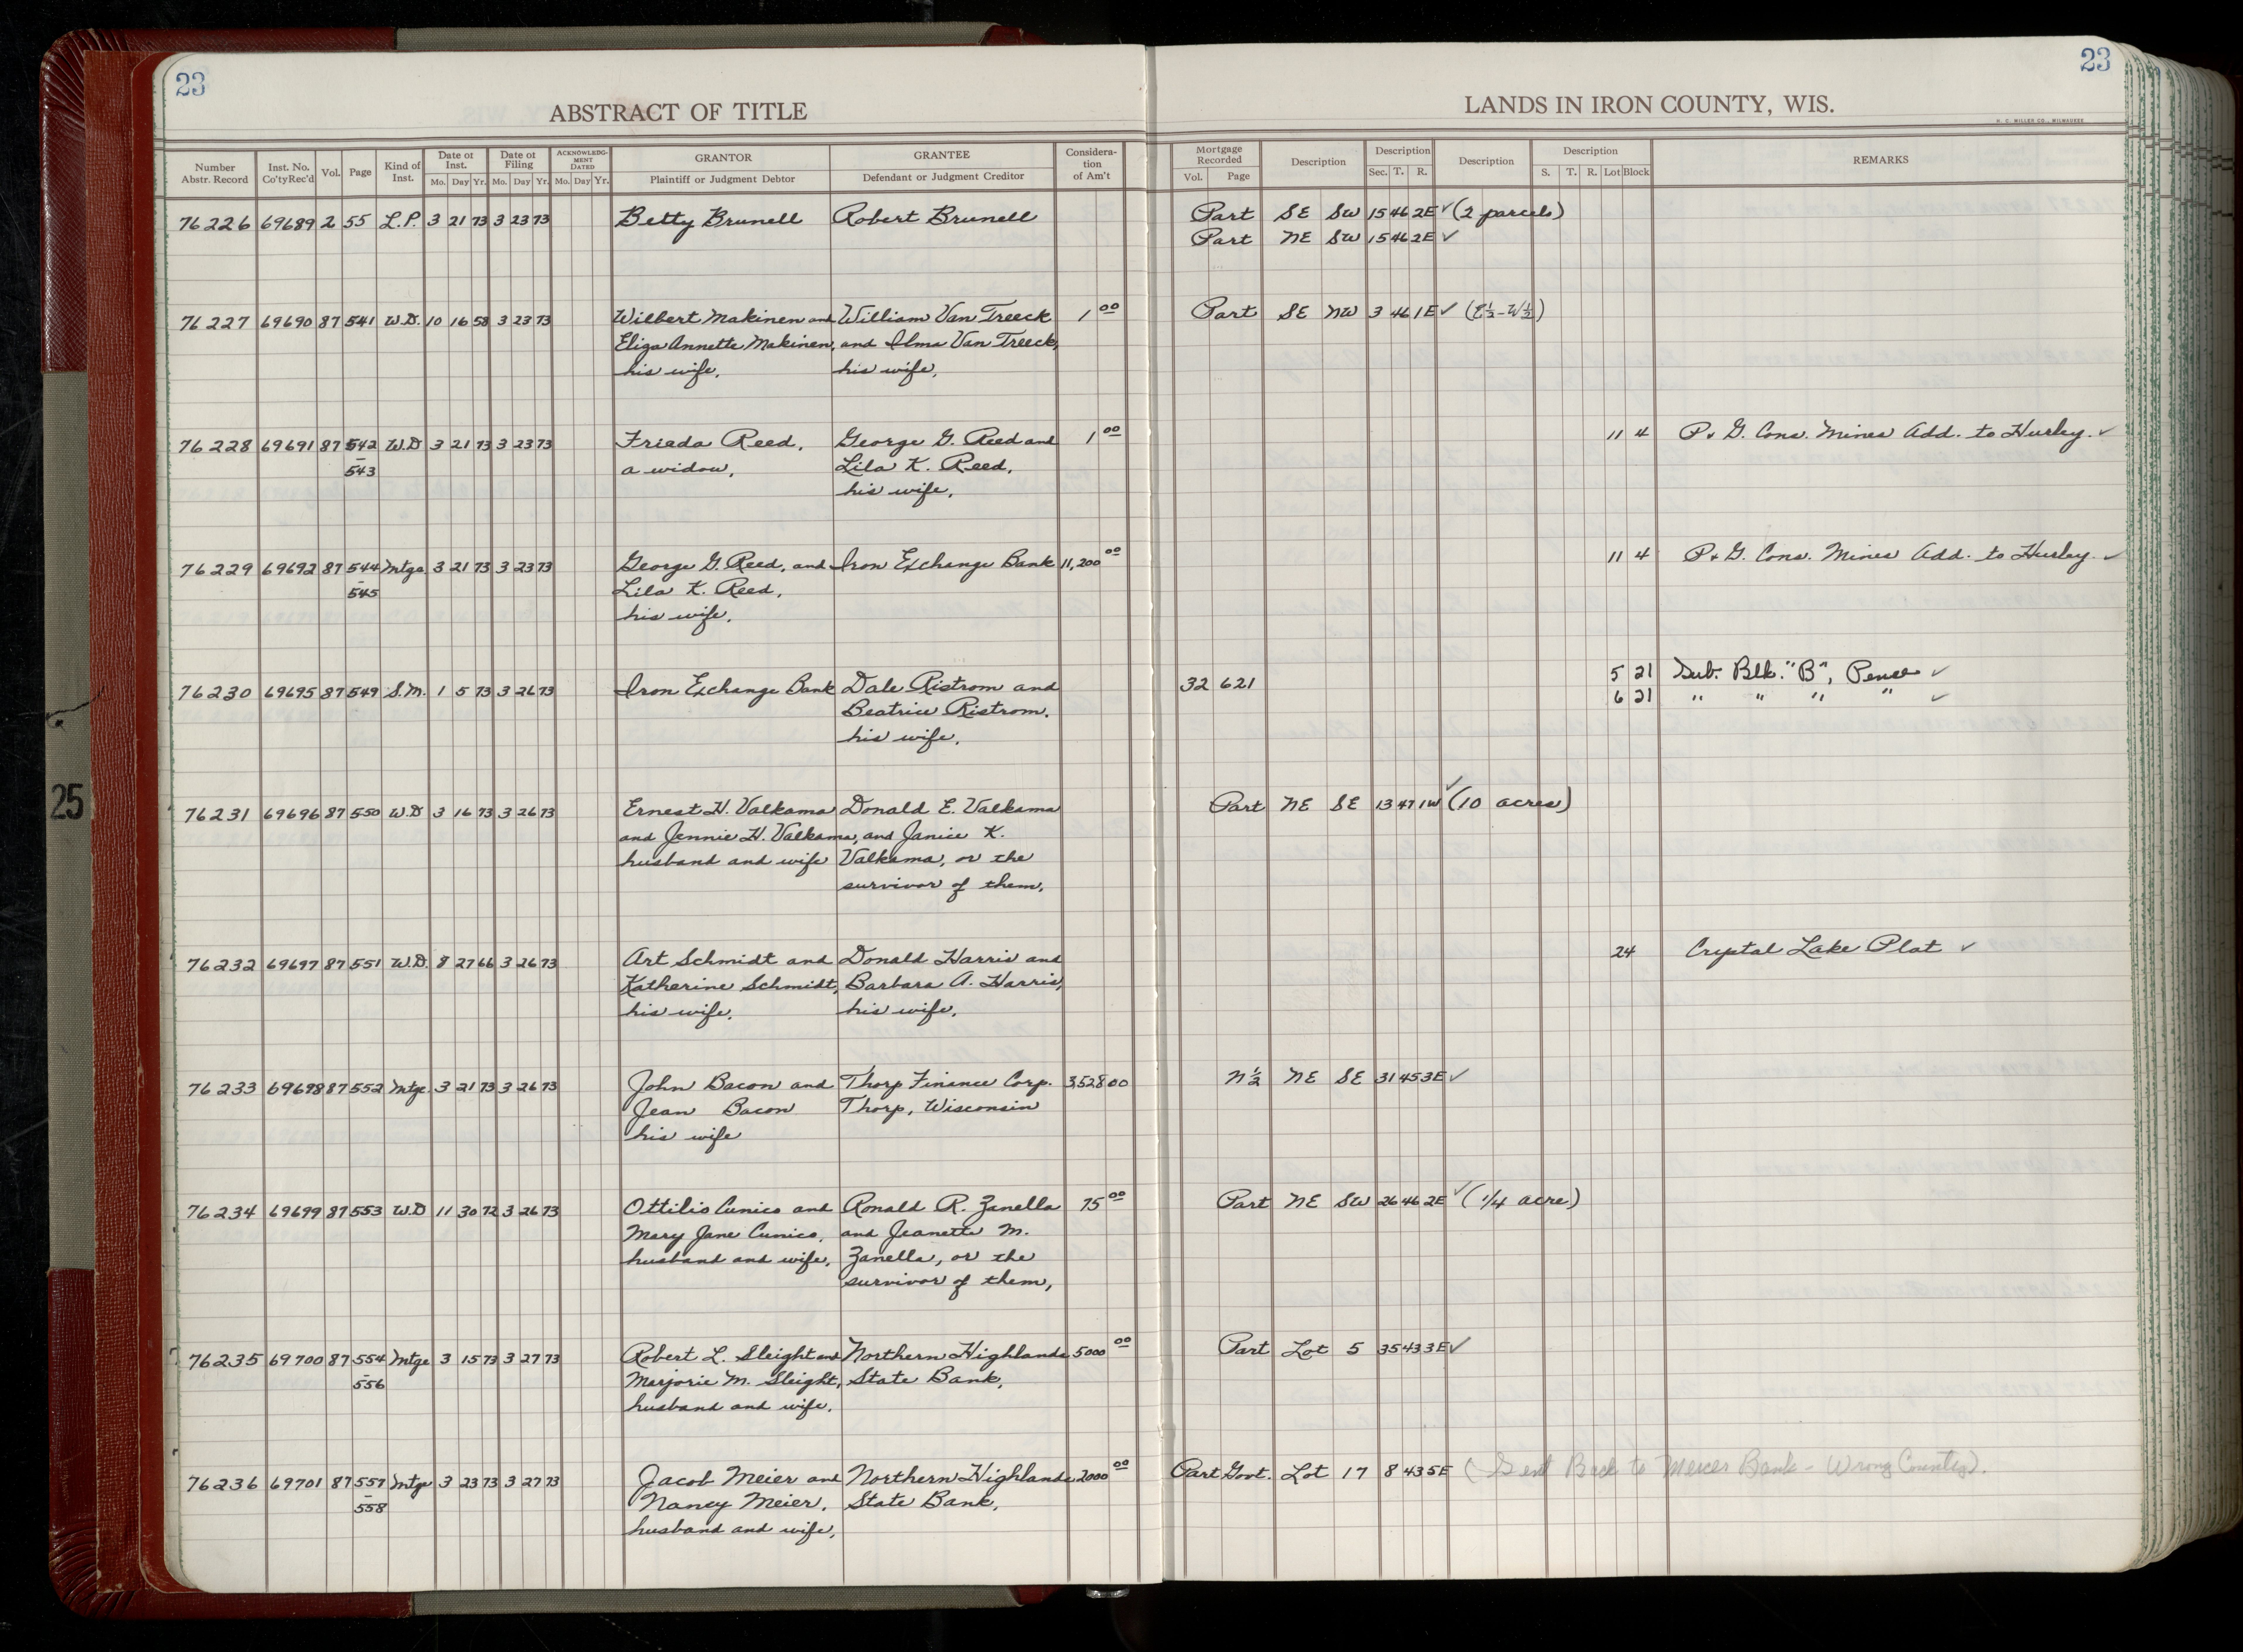 23
23
ABSTRACT OF TITLE
LANDS IN IRON COUNTY, WIS.
H. C. MILLER CO., MILWAUKEE
Number Abstr. Record Inst. No. Co'ty Rec'd Vol. Page Kind of Inst. Date of Inst. Mo. Day Yr. Date of Filing Mo. Day Yr. ACKNOWLEDGMENT DATED Mo. Day Yr. GRANTOR Plaintiff or Judgment Debtor GRANTEE Defendant or Judgment Creditor Consideration of Am't Mortgage Recorded Vol. Page Description Description Sec. T. R. Description Description S. T. R. Lot Block REMARKS
76226 69689 2 55 L.P. 3 21 73 3 23 73 Betty Brunell Robert Brunell Part SE SW 15 46 2E ✓ (2 parcels)
Part NE SW 15 46 2E ✓
76227 69690 87 541 W.D. 10 16 58 3 23 73 Wilbert Makinen and William Van Treeck 1 00 Part SE NW 3 46 1E ✓ (E½-W½)
Eliza Annette Makinen, and Ilma Van Treeck,
his wife, his wife,
76228 69691 87 542 W.D 3 21 73 3 23 73 Frieda Reed, George G. Reed and 1 00 11 4 P. & G. Cons. Mines Add. to Hurley. ✓
- 543 a widow, Lila K. Reed,
his wife,
76229 69692 87 544 Mtge 3 21 73 3 23 73 George G. Reed, and Iron Exchange Bank 11,200 00 11 4 P. & G. Cons. Mines Add. to Hurley. ✓
- 545 Lila K. Reed,
his wife,
76230 69695 87 549 S.M. 1 5 73 3 26 73 Iron Exchange Bank Dale Ristrom and 32 621 5 21 Sub. Blk. "B", Pence ✓
Beatrice Ristrom, 6 21 " " " " ✓
his wife,
76231 69696 87 550 W.D 3 16 73 3 26 73 Ernest H. Valkama Donald E. Valkama Part NE SE 13 47 1W ✓ (10 acres)
and Jennie H. Valkama, and Janice K.
husband and wife Valkama, or the
survivor of them,
76232 69697 87 551 W.D. 8 27 66 3 26 73 Art Schmidt and Donald Harris and 24 Crystal Lake Plat ✓
Katherine Schmidt, Barbara A. Harris,
his wife, his wife,
76233 69698 87 552 Mtge. 3 21 73 3 26 73 John Bacon and Thorp Finance Corp. 3528 00 N½ NE SE 31 45 3E ✓
Jean Bacon Thorp, Wisconsin
his wife
76234 69699 87 553 W.D 11 30 72 3 26 73 Ottilio Cunico and Ronald R. Zanella 75 00 Part NE SW 26 46 2E ✓ (1/4 acre)
Mary Jane Cunico, and Jeanette M.
husband and wife, Zanella, or the
survivor of them,
76235 69700 87 554 Mtge 3 15 73 3 27 73 Robert L. Sleight and Northern Highlands 5000 00 Part Lot 5 35 43 3E ✓
- 556 Marjorie M. Sleight, State Bank,
husband and wife,
76236 69701 87 557 Mtge 3 23 73 3 27 73 Jacob Meier and Northern Highlands 2000 00 Part Govt. Lot 17 8 43 5E (Sent Back to Mercer Bank - Wrong County).
- 558 Nancy Meier, State Bank,
husband and wife,
25